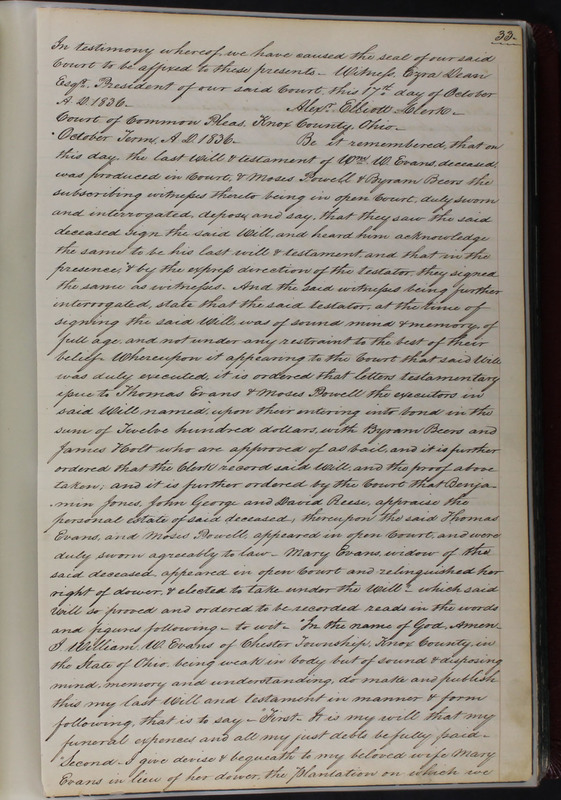 33.
In testimony whereof, we have caused the seal of our said
Court to be affixed to these presents. Witness, Ezra Dean
Esqr. President of our said Court, this 17th day of October
A. D. 1836. Alexr. Elliott Clerk
Court of Common Pleas, Knox County, Ohio
October Term, A. D. 1836. Be it remembered, that on
this day, the last Will & testament of Wm. W. Evans, deceased,
was produced in Court, & Moses Powell & Byram Beers the
subscribing witnesses thereto being in open Court, duly sworn
and interrogated, depose, and say, that they saw the said
deceased sign the said Will, and heard him acknowledge
the same to be his last will & testament, and that in the
presence, & by the express direction of the testator, they signed
the same as witnesses. And the said witnesses being further
interrogated, state that the said testator, at the time of
signing the said Will, was of sound mind & memory, of
full age, and not under any restraint to the best of their
belief. Whereupon it appearing to the Court that said Will
was duly executed, it is ordered that letters testamentary
issue to Thomas Evans & Moses Powell the executors in
said Will named, upon their entering into bond in the
sum of Twelve hundred dollars, with Byram Beers and
James Holt who are approved of as bail, and it is further
ordered that the Clerk record said Will, and the proof above
taken; and it is further ordered by the Court that Benja-
-min Jones, John George and David Reese, appraise the
personal estate of said deceased; thereupon the said Thomas
Evans, and Moses Powell, appeared in open Court, and were
duly sworn agreeably to law. Mary Evans, widow of the
said deceased, appeared in open Court and relinquished her
right of dower, & elected to take under the Will - which said
Will so proved and ordered to be recorded reads in the words
and figures following - to wit - "In the name of God, Amen
I William W. Evans of Chester Township, Knox County, in
the State of Ohio, being weak in body but of sound & disposing
mind, memory and understanding, do make and publish
this my last Will and testament in manner & form
following, that is to say - First. It is my will that my
funeral expences and all my just debts be fully paid -
Second - I give devise & bequeath to my beloved wife Mary
Evans in lieu of her dower, the Plantation on which we